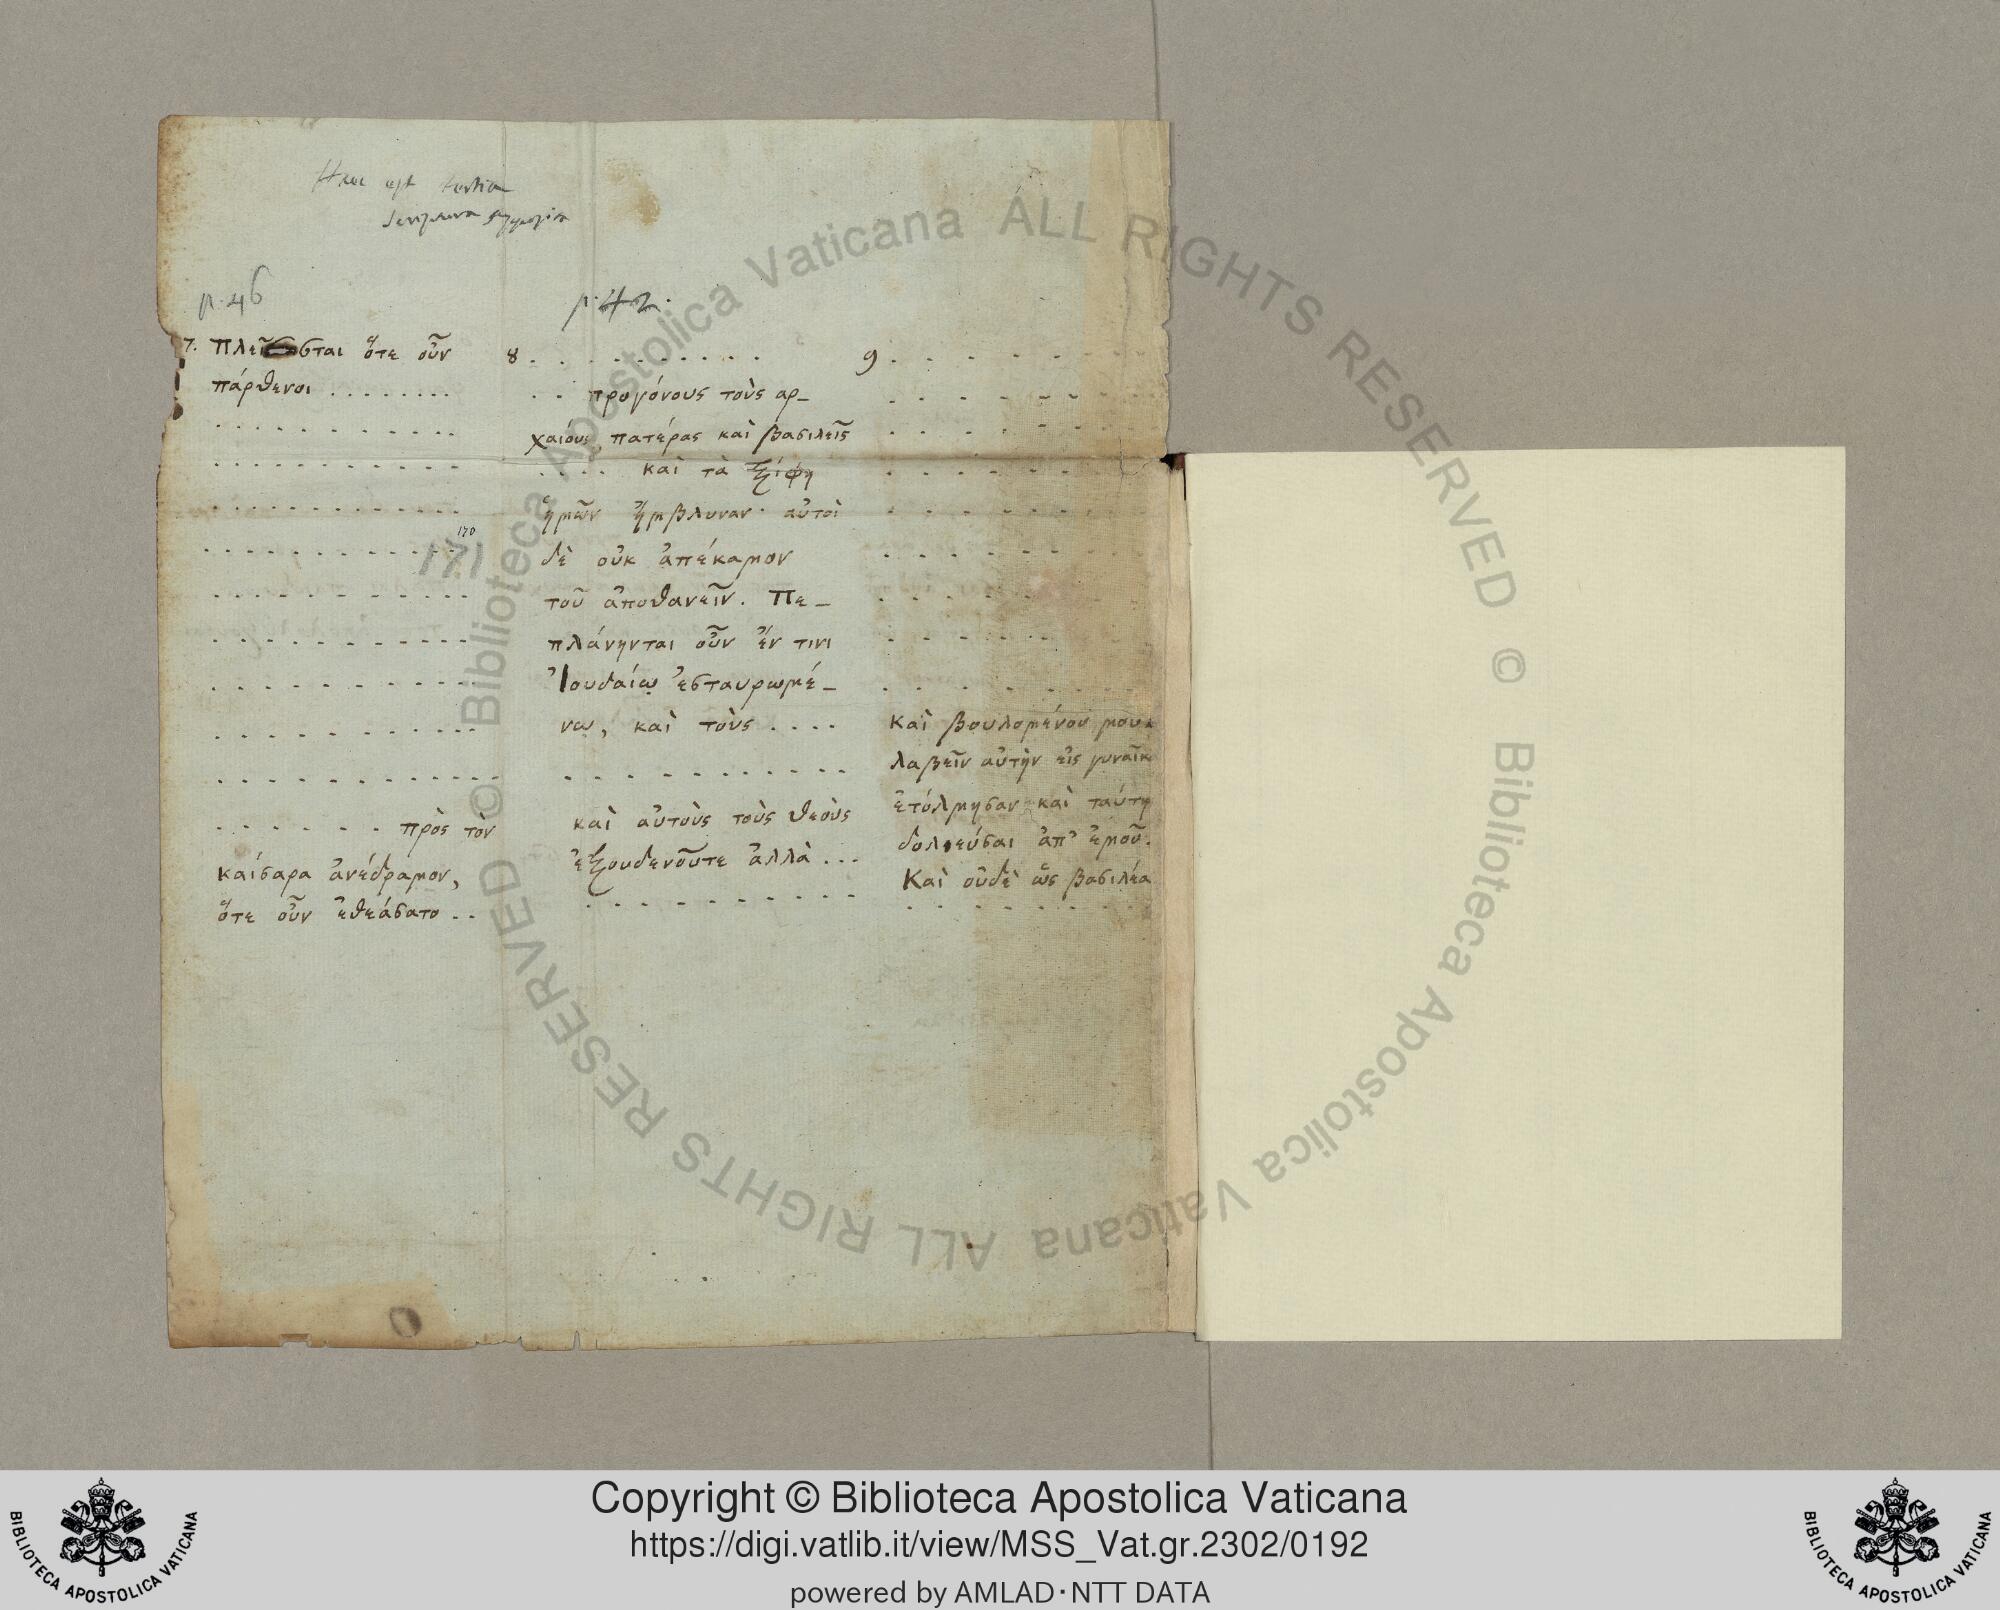 Haec est tertia
p. 46
p. 42.
7. Πλεῖσται ὅτε οὖν
πάρθενοι . . . . . . . .
170
171
πρὸς τὸν
καίσαρα ἀνέδραμον,
ὅτε οὖν ἐθεάσατο . .
8 . . . . . . . . . .
. . προγόνους τοὺς αρ_
χαίους πατέρας καὶ βασιλεῖς
. . . . καὶ τὰ ξίφη
ἡμῶν ἤμβλυναν· αὐτοὶ
δὲ οὐκ ἀπέκαμον
τοῦ ἀποθανεῖν. Πε_
πλάνηνται οὖν ἔν τινι
Ἰουδαίῳ ἐσταυρωμέ_
νω, καὶ τοὺς . . . .
καὶ αὐτοὺς τοὺς θεοὺς
ἐξουδενοῦτε ἀλλὰ . . .
9 . . . . . . . . .
Καὶ βουλομένου μου
λαβεῖν αὐτὴν εἰς γυναῖκ
ἐτόλμησαν καὶ ταύτη
ἀπ' ἐμοῦ.
Καὶ οὐδὲ ὡς βασιλέα
© Biblioteca Apostolica Vaticana ALL RIGHTS RESERVED © Biblioteca Apostolica Vaticana ALL RIGHTS RESERVED
Copyright © Biblioteca Apostolica Vaticana
https://digi.vatlib.it/view/MSS_Vat.gr.2302/0192
powered by AMLAD·NTT DATA
BIBLIOTECA APOSTOLICA VATICANA
BIBLIOTECA APOSTOLICA VATICANA